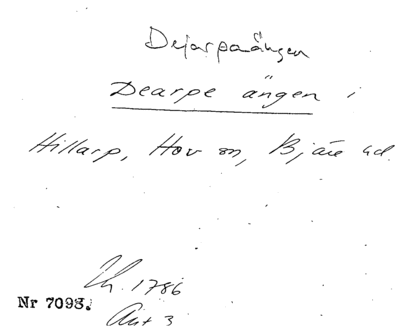 Dejarpaängen
Dearpe ängen i
Hillarp, Hov sn, Bjäre hd.
Lh. 1786
Nr 7093.
Akt 3